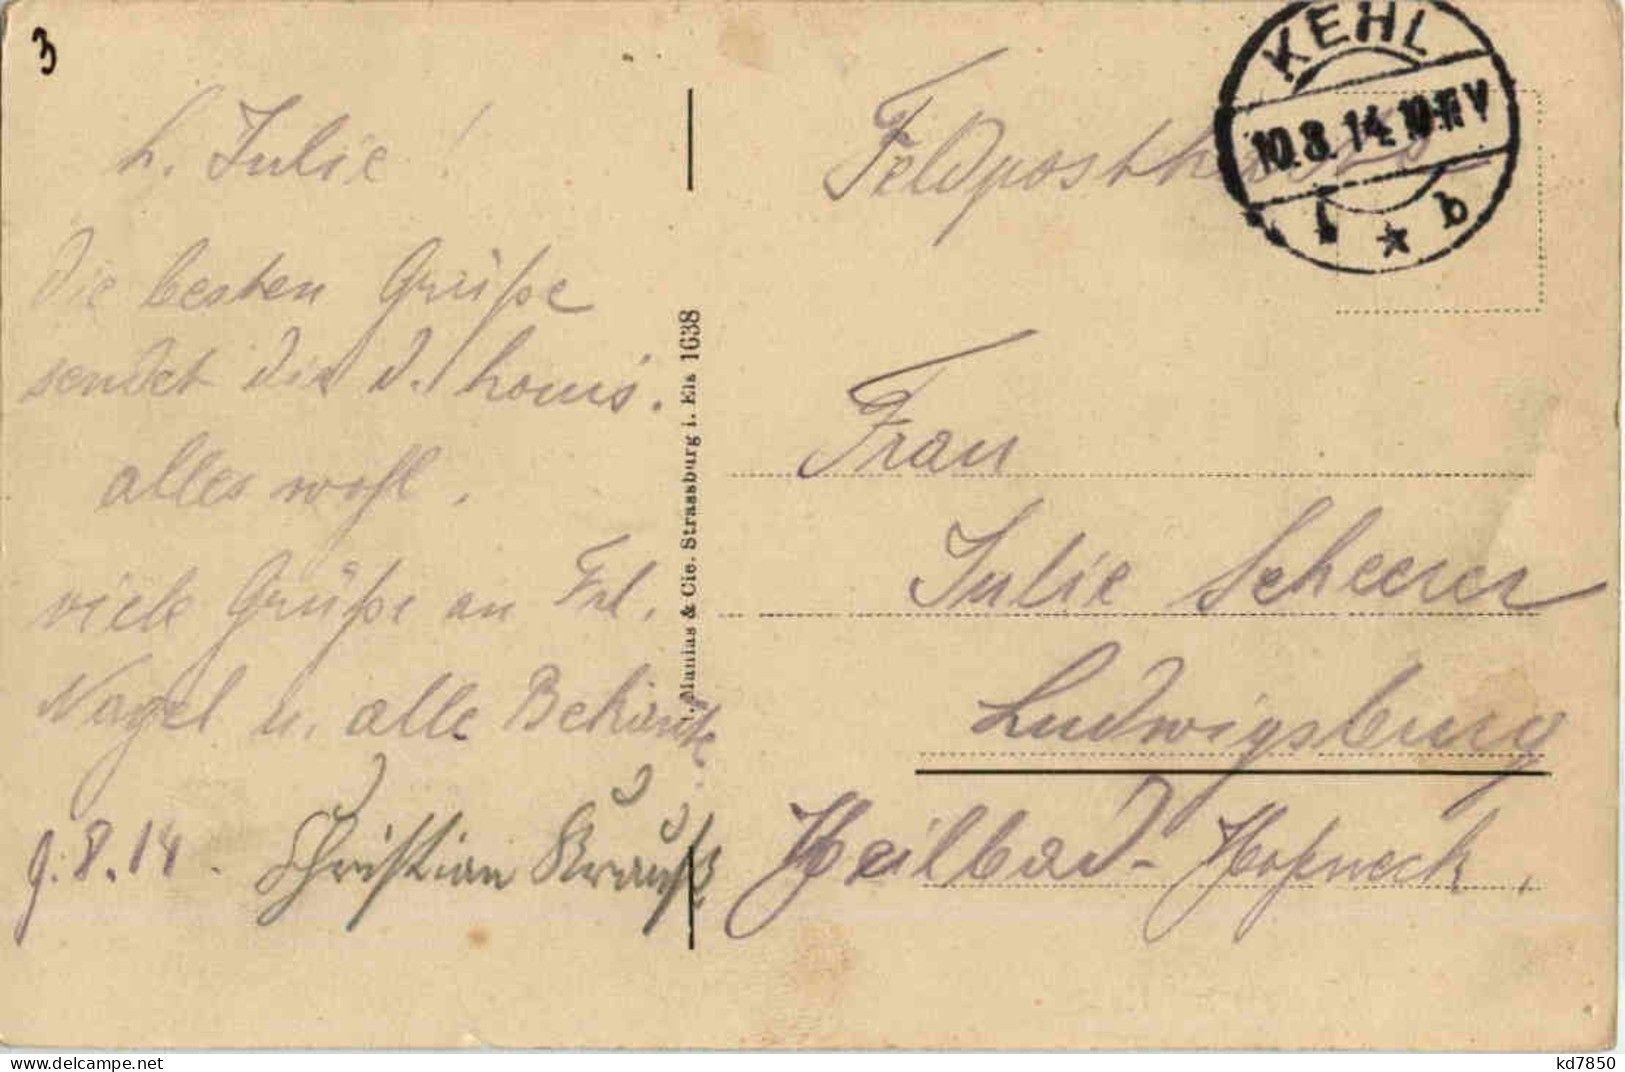 3
L. Julie!
Die besten Grüße
sendet dir d. Louis.
alles wohl.
viele Grüße an Frl.
Nagel u. alle Bekannte
9.8.14. Christian Krauß
Manias & Cie. Strassburg i. Els 1638
KEHL
10.8.14. 10-11 V
* b
Feldpostkarte
Frau
Julie Scheerer
Ludwigsburg
Heilbad-Hoheneck.
kd7850